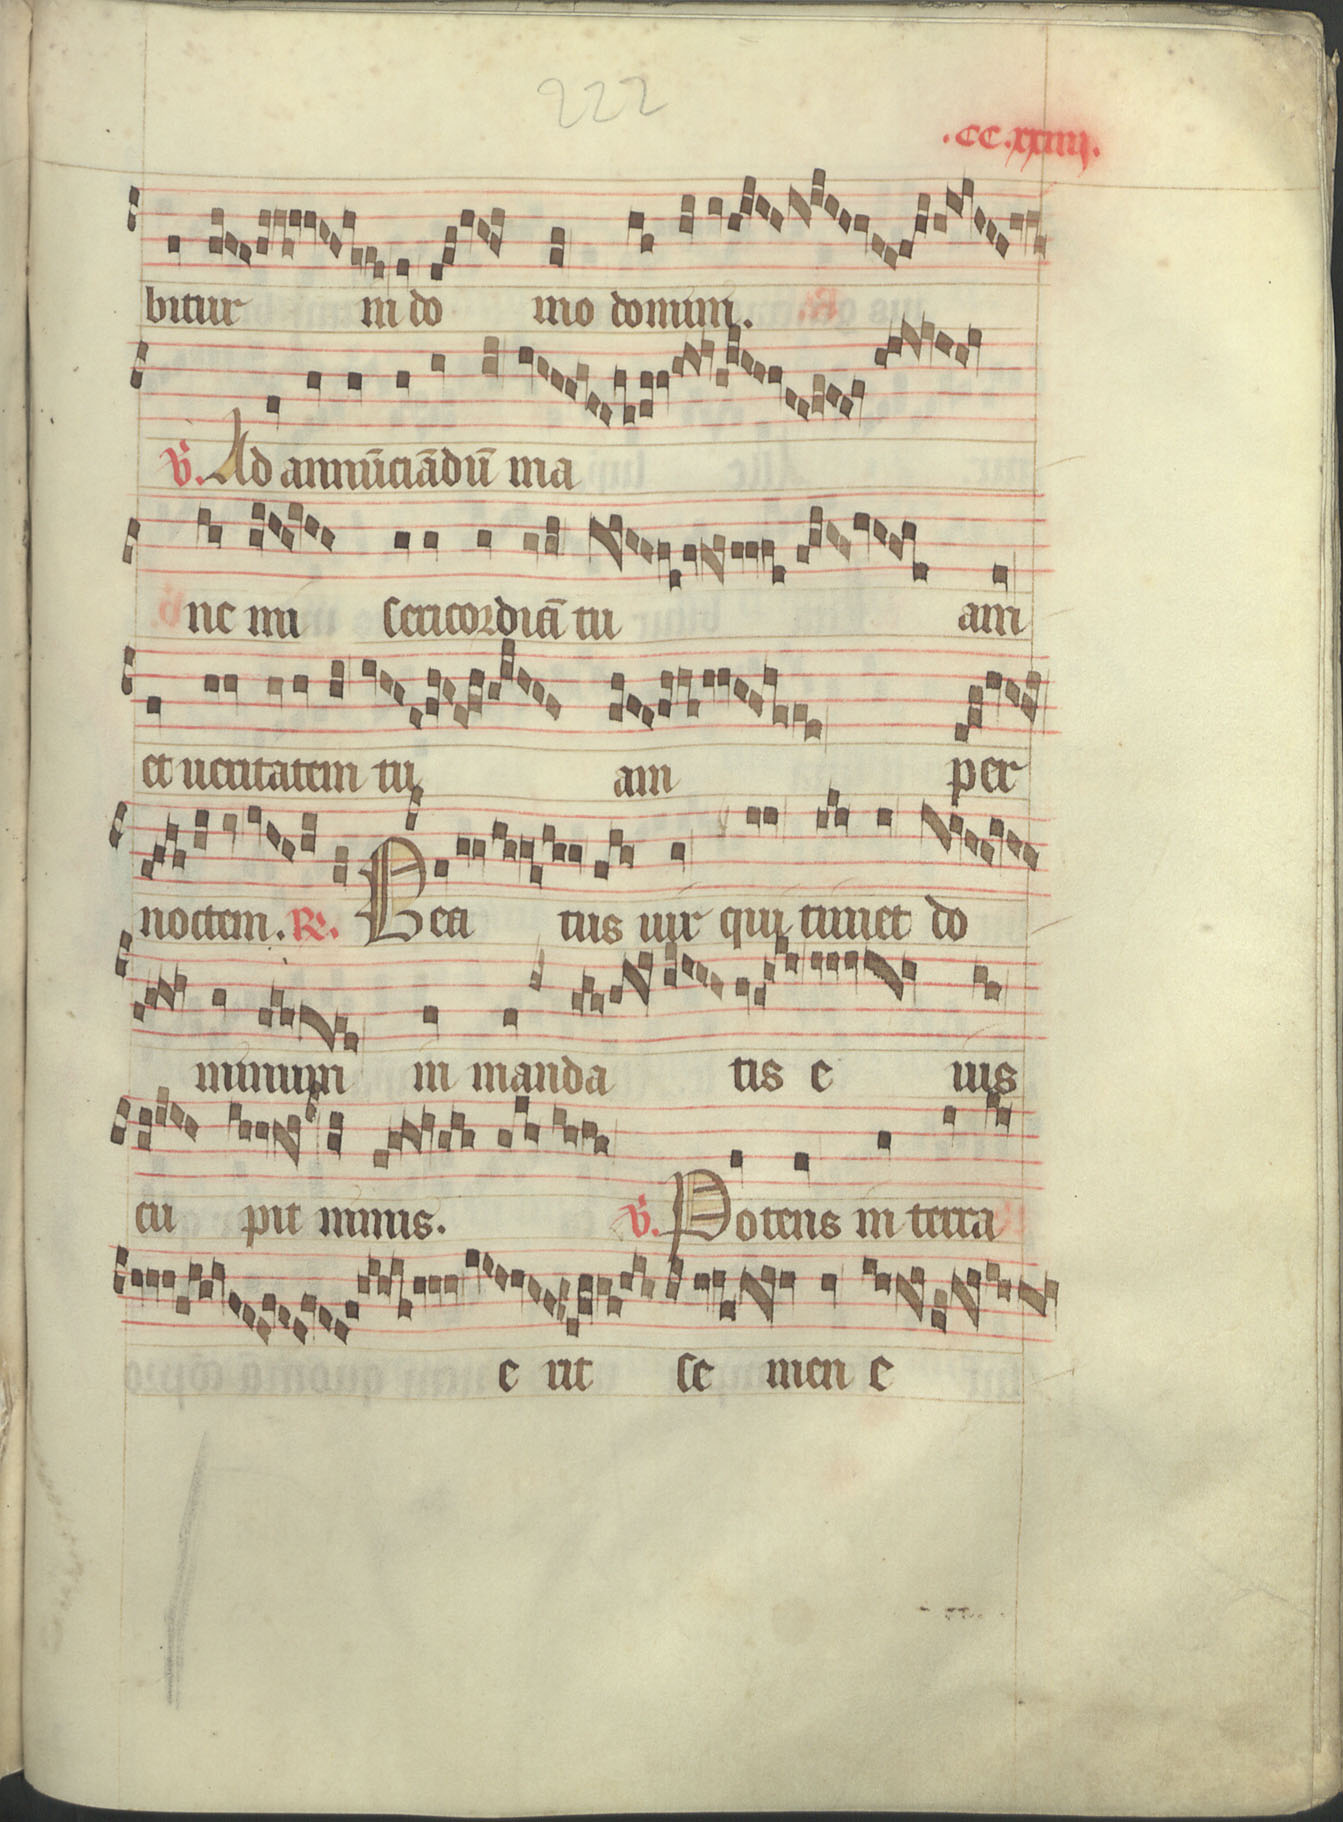 222
.CC.xxiiij.
bitur in do mo domini.
V. Ad annūciādū ma
ne mi sericordiā tu am
et ueritatem tu am per
noctem. R. Bea tus uir qui timet do
minum in manda tis e ius
cu pit nimis. V. Potens in terra
e rit se men e